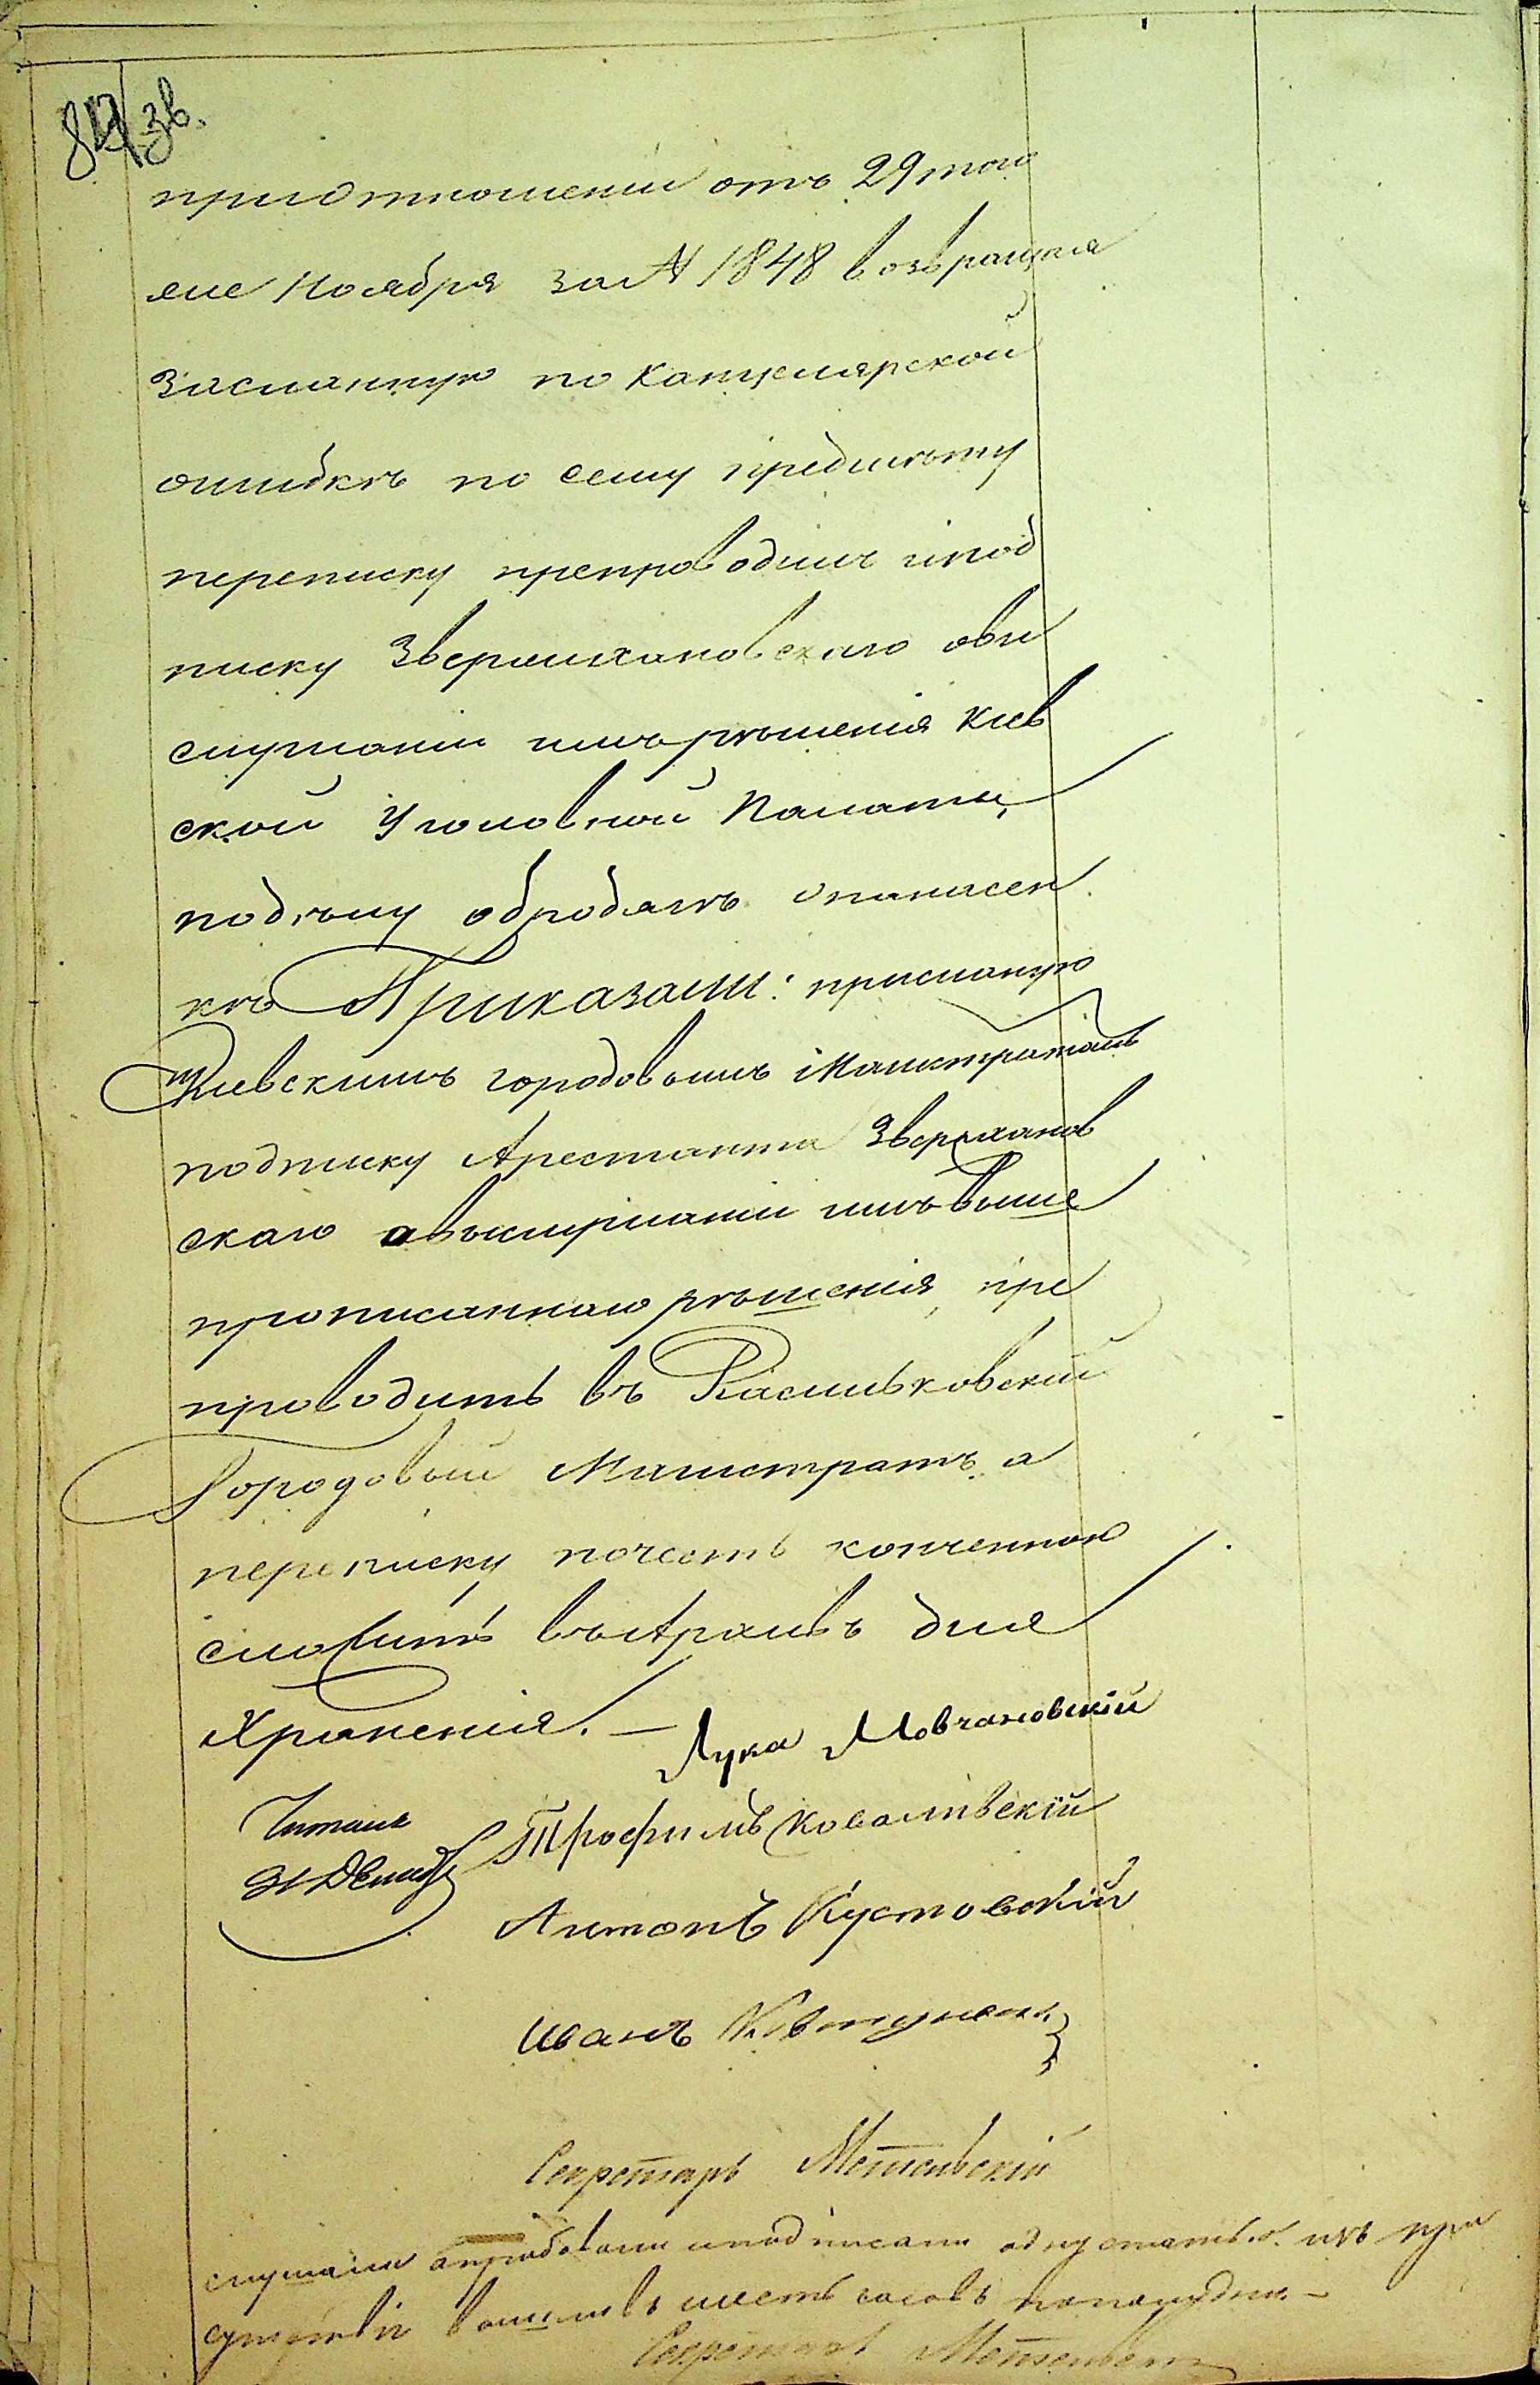 84 зв.
приотношеніи отъ 29 того
же Ноября за № 1848 возвращая
засланную по Канцелярской
ошибкѣ по сему предмѣту
переписку препроводилъ ипод
писку Звержхановскаго овы
слушаніи имъ рѣшенія Кіев
ской Уголовной Палаты,
подѣлу обродягѣ Опанасен
кѣ Приказали: присланую
Кіевскимъ городовымъ Магистратомъ
подписку Арестанта Звержханов
скаго овыслушаніи имъ выше
прописаннаго рѣшенія, пре
проводить въ Васильковскій
Городовый Магистратъ, а
переписку почесть конченною
сложить въ Архивъ для
Храненія. —
Лука Мовчановскій
Читалъ
Трофимъ Ковалѣвскій
Антонъ Кустовскій
Иванъ
Секретарь Метельскій
слушали апробовали иподписали одну статью. изъ при
сутствія вышли въ шесть часовъ пополудни. —
Секретарь Метельскій